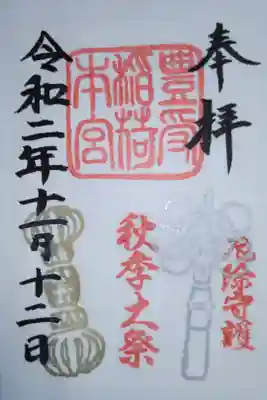 奉拝
厄除守護
豊受
稲荷
本宮
秋季之祭
令和二年十一月十二日